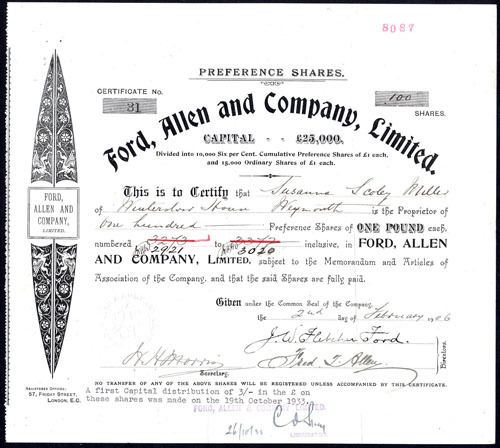 8087
PREFERENCE SHARES.
CERTIFICATE No.
31
100
SHARES.
Ford, Allen and Company, Limited.
CAPITAL - - £25,000.
Divided into 10,000 Six per Cent. Cumulative Preference Shares of £1 each,
and 15,000 Ordinary Shares of £1 each.
This is to Certify that Susanna Scoley Miller
of Winterslow House Weymouth is the Proprietor of
One hundred Preference Shares of ONE POUND each,
numbered 2921 to 3020 inclusive, in FORD, ALLEN
AND COMPANY, LIMITED, subject to the Memorandum and Articles of
Association of the Company, and that the said Shares are fully paid.
Given under the Common Seal of the Company,
the 2nd day of February 1906
J. W. Fletcher Ford.
Fred T. Allen
Directors.
Secretary.
FORD,
ALLEN AND
COMPANY,
LIMITED.
REGISTERED OFFICE:
57, FRIDAY STREET,
LONDON, E.C.
NO TRANSFER OF ANY OF THE ABOVE SHARES WILL BE REGISTERED UNLESS ACCOMPANIED BY THIS CERTIFICATE.
A first Capital distribution of 3/- in the £ on
these shares was made on the 19th October 1933.
FORD, ALLEN & COMPANY, LIMITED.
26/10/33
LIQUIDATOR